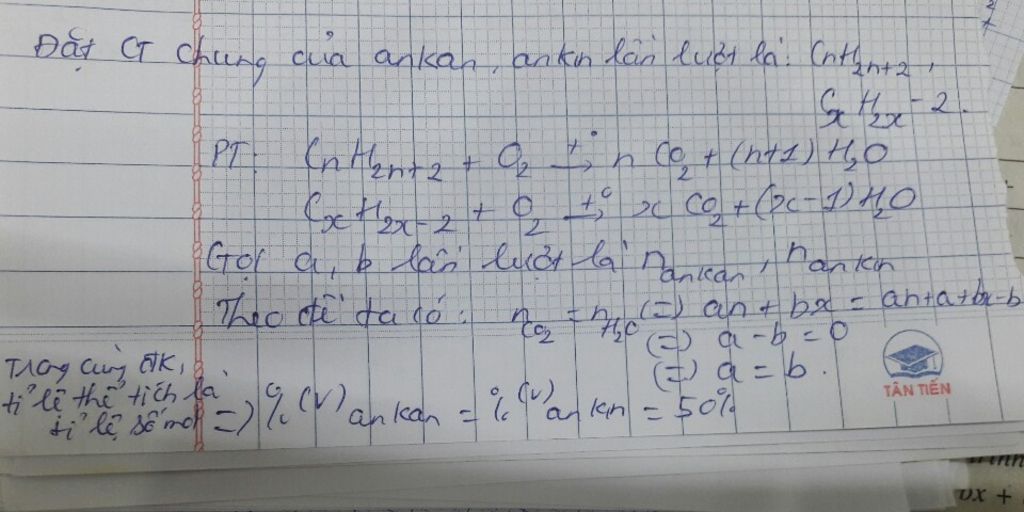 Đặt CT chung của ankan, ankin lần lượt là: CnH2n+2,
CxH2x-2.
PT: CnH2n+2 + O2 t°→ n CO2 + (n+1) H2O
CxH2x-2 + O2 t°→ x CO2 + (x-1) H2O
Gọi a, b lần lượt là n ankan, n ankin
Theo đề ta có: nCO2 = nH2O (=) an + bx = an+a+bx-b
(=) a-b=0
(=) a = b.
Trong cùng ĐK,
tỉ lệ thể tích là
tỉ lệ số mol => %(V) ankan = %(V) ankin = 50%
TÂN TIẾN